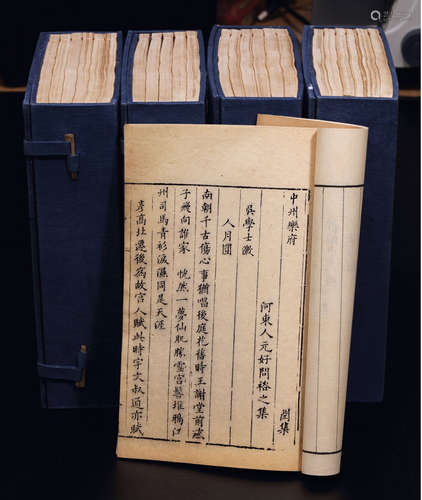 中州樂府 閏集
河東人元好問裕之集
吳學士激
人月圓
南朝千古傷心事猶唱後庭花舊時王謝堂前燕
子飛向誰家 恍然一夢仙肌勝雪宮髻堆鴉江
州司馬青衫淚濕同是天涯
彥高北遷後為故宮人賦此時宇文叔通亦賦